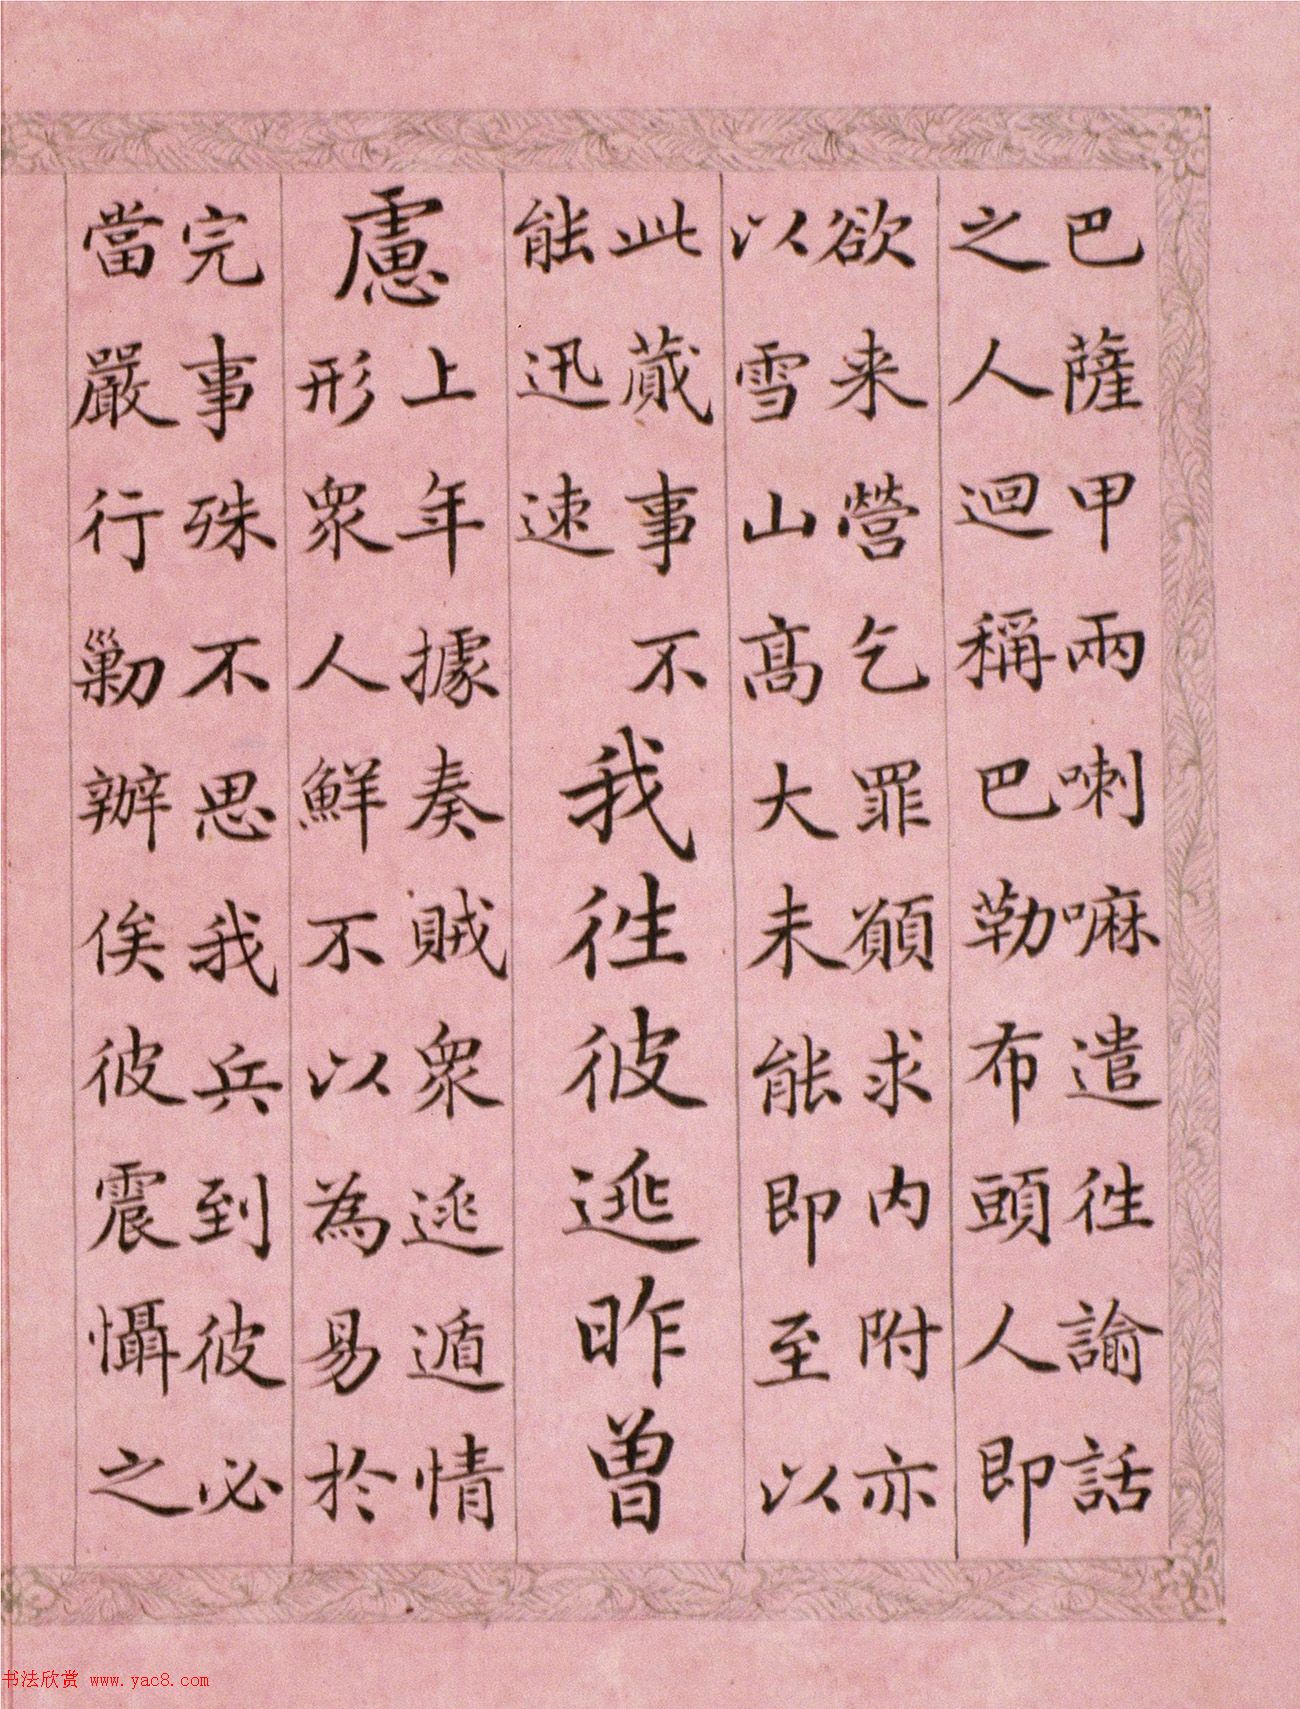 巴薩甲兩喇嘛遣往諭話
之人迴稱巴勒布頭人即
欲来營乞罪願求内附亦
以雪山髙大未能即至以
此蕆事不
能迅速
我往彼逃昨曾
慮
上年據奏賊衆逃遁情
形衆人鮮不以為易於
完事殊不思我兵到彼必
當嚴行勦辦俟彼震懾之
书法欣赏 www.yac8.com